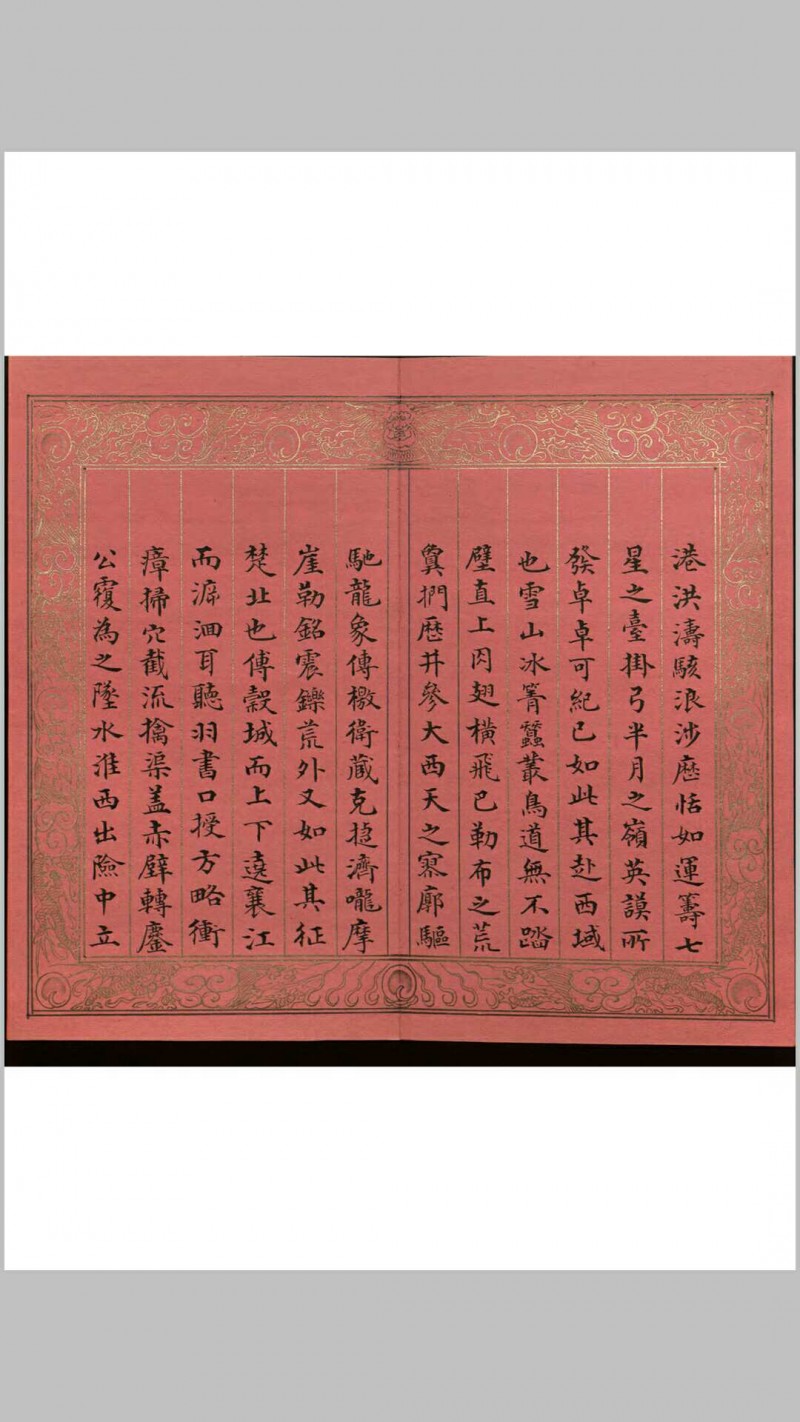 港洪濤駭浪涉歷恬如運籌七
星之臺掛弓半月之嶺英謨所
發卓卓可紀已如此其赴西域
也雪山冰箐蠶叢鳥道無不踏
壁直上闪翅橫飛巴勒布之荒
算捫歷井參大西天之寥廓驅
馳龍象傳檄衛藏克捷濟嚨摩
崖勒銘震鑠荒外又如此其征
楚北也傅穀城而上下遶襄江
而泝洄耳聽羽書口授方略衝
瘴掃穴截流擒渠蓋赤壁轉鏖
公寔為之墜水淮西出險中立